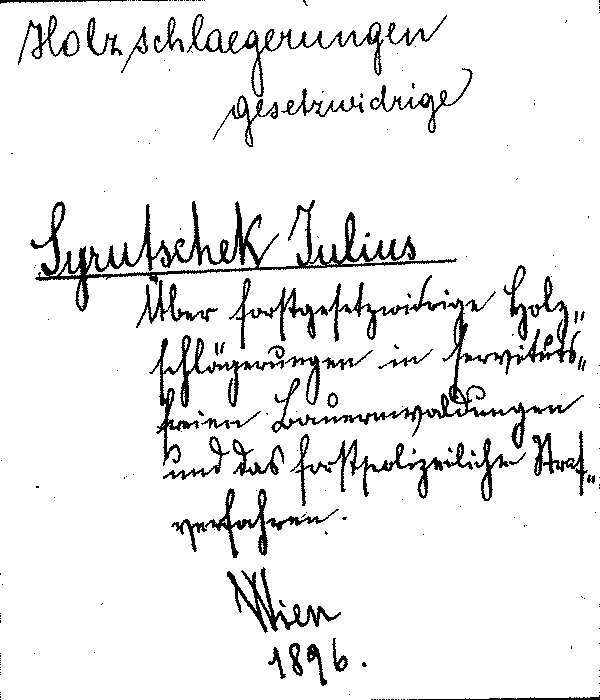 Holzschlaegerungen
gesetzwidrige
Syrutschek Julius
Über forstgesetzwidrige Holz„
schlägerungen in servituts„
freien Bauernwaldungen
und das forstpolizeiliche Straf„
verfahren.
Wien
1896.